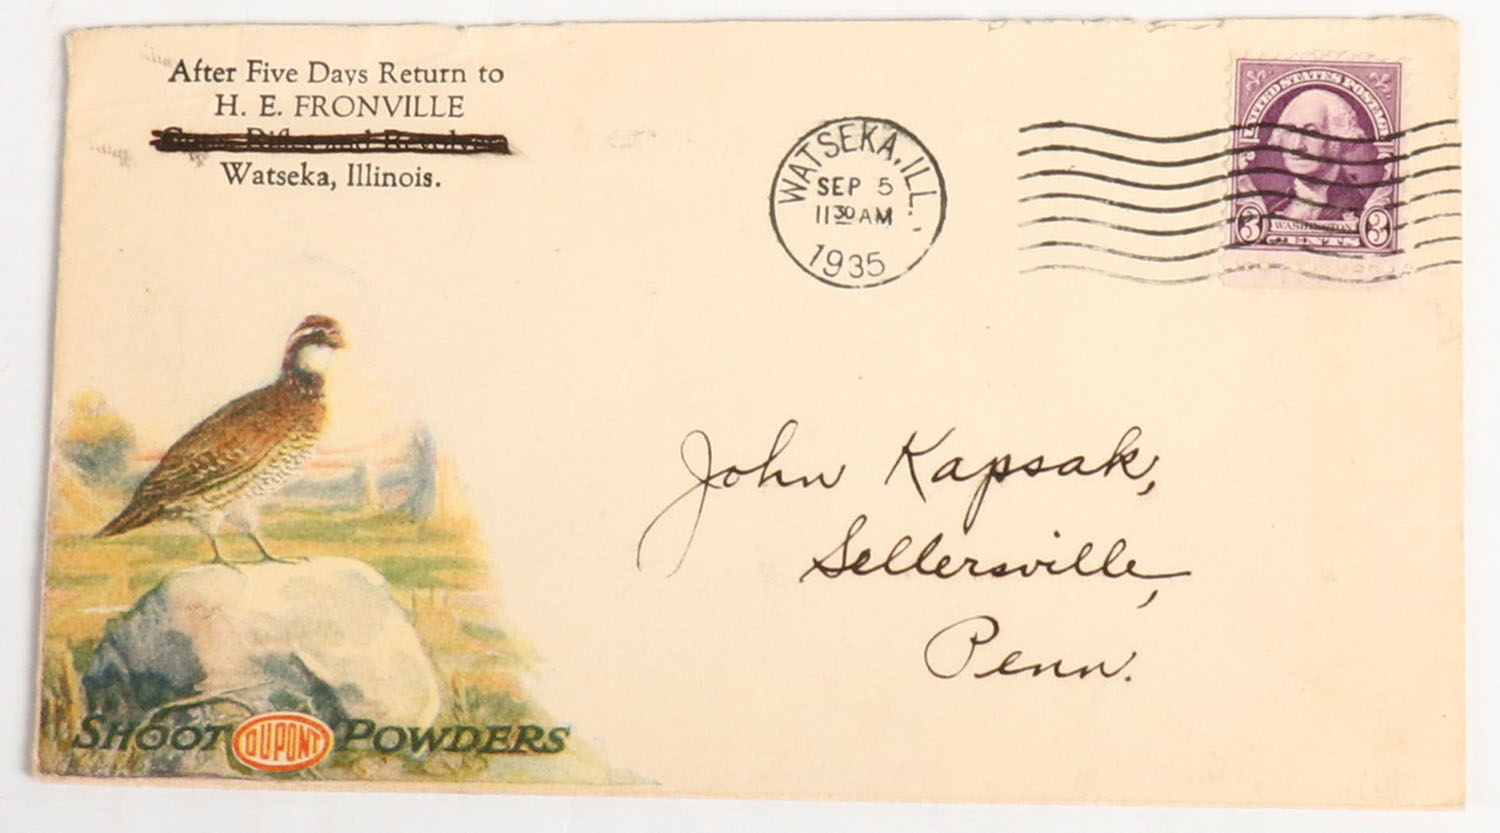 After Five Days Return to
H. E. FRONVILLE
Rifles and Revolvers
Watseka, Illinois.
WATSEKA, ILL.
SEP 5
11 30 AM
1935
UNITED STATES POSTAGE
3 WASHINGTON 3
CENTS
John Kapsak,
Sellersville,
Penn.
SHOOT DUPONT POWDERS